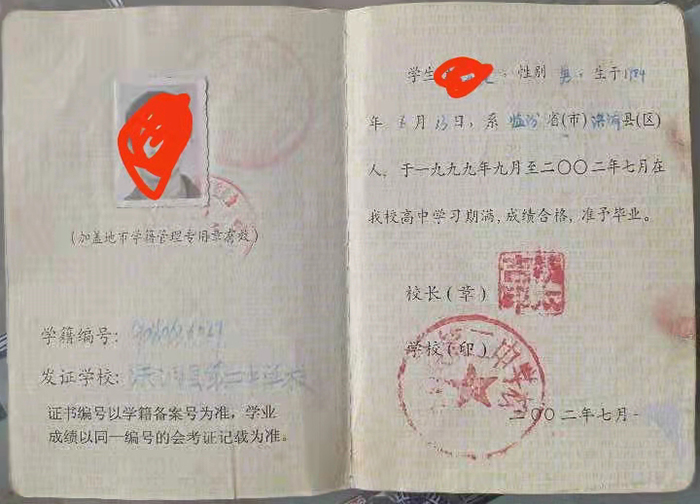 (加盖地市学籍管理专用章有效)
学籍编号:
发证学校:洪洞县第二中学校
证书编号以学籍备案号为准,学业
成绩以同一编号的会考证记载为准。
学生 性别 男,生于1984
年 月13日,系 临汾省(市)洪洞县(区)
人,于一九九九年九月至二〇〇二年七月在
我校高中学习期满,成绩合格,准予毕业。
校长(章)
学校(印)
二〇〇二年七月